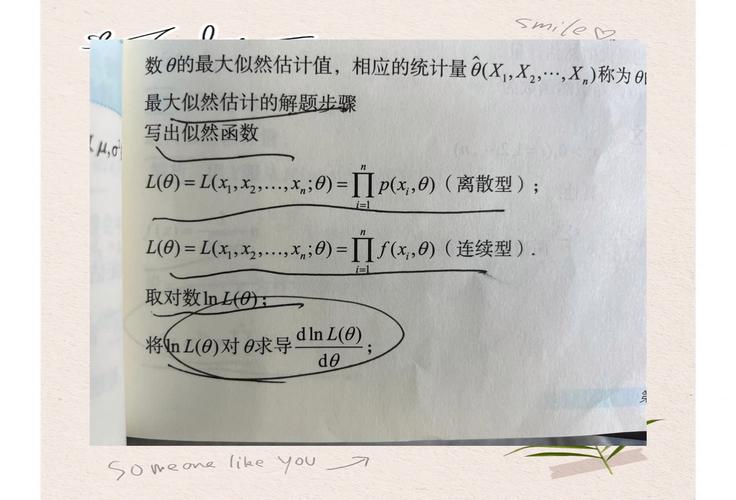 smile♡
数θ的最大似然估计值，相应的统计量θ̂(X₁,X₂,⋯,Xₙ)称为θ
最大似然估计的解题步骤
写出似然函数
μ,σ
L(θ)=L(x₁,x₂,…,xₙ;θ)=∏ⁿᵢ₌₁ p(xᵢ,θ)（离散型）;
L(θ)=L(x₁,x₂,…,xₙ;θ)=∏ⁿᵢ₌₁ f(xᵢ,θ)（连续型）.
取对数ln L(θ);
将ln L(θ)对θ求导 d ln L(θ)/dθ;
someone like you